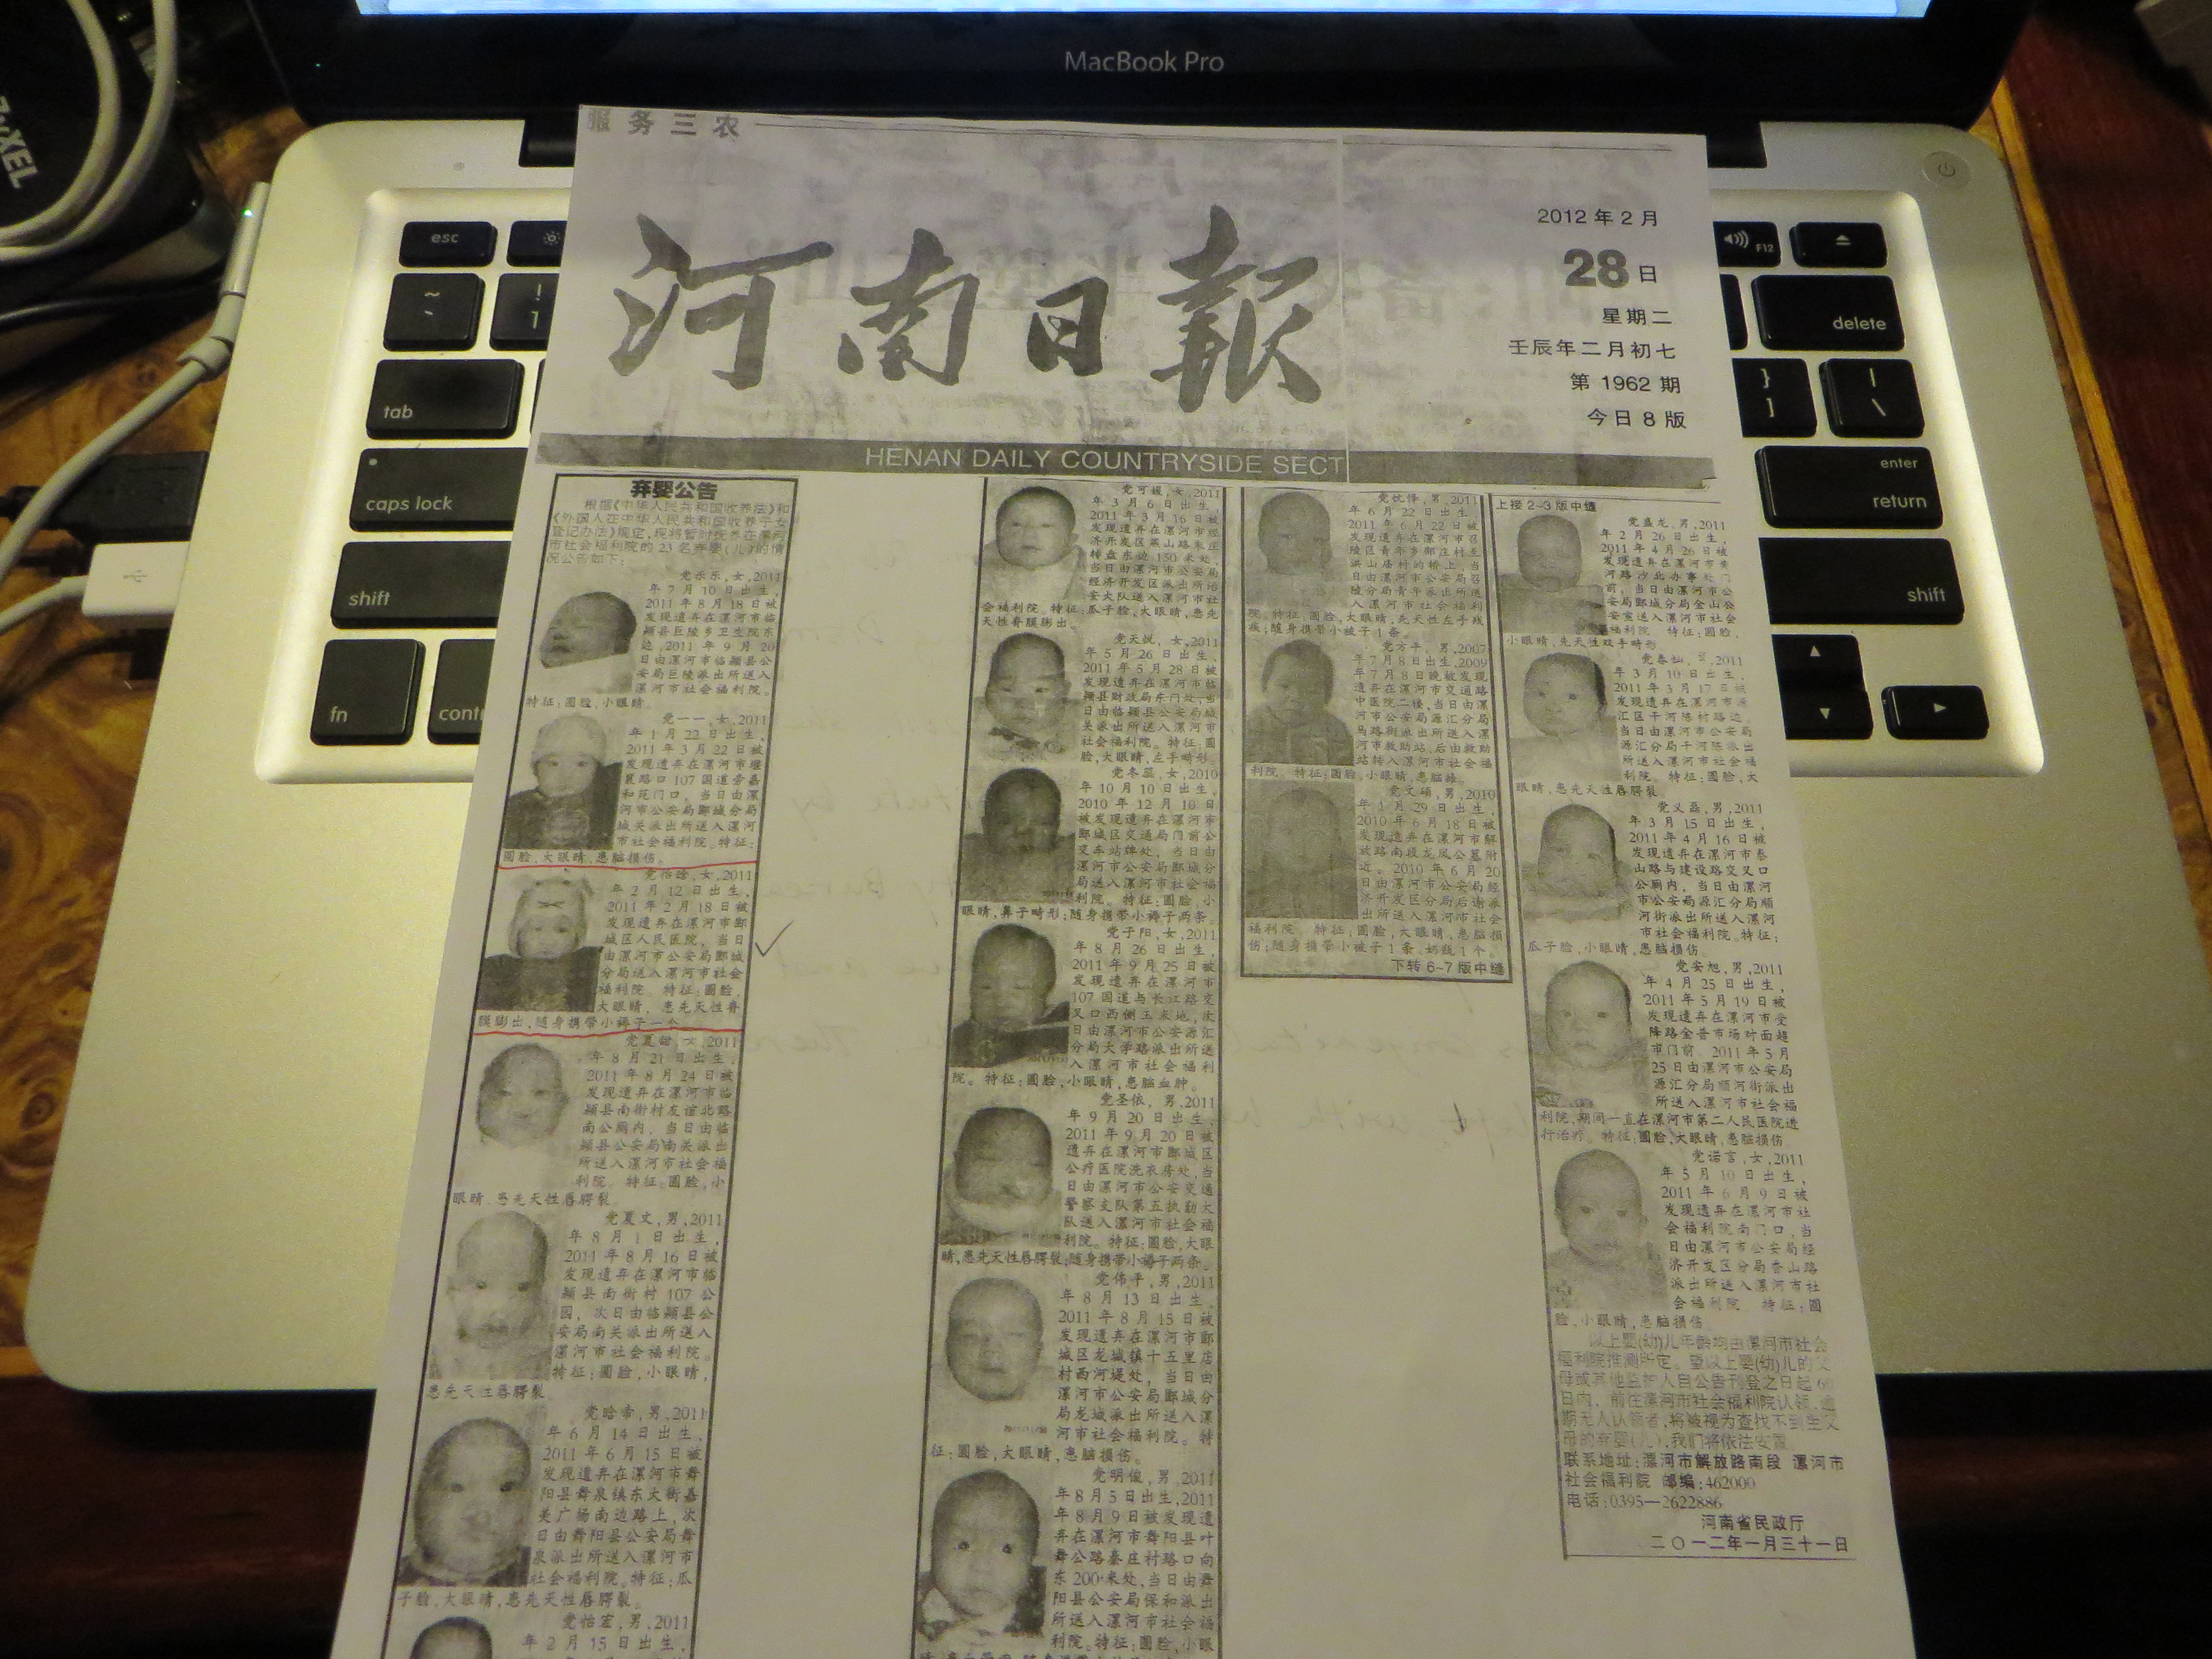 MacBook Pro
ZyXEL
esc
F12
tab
delete
caps lock
enter
return
shift
shift
fn
服务三农
河南日報
2012 年 2 月
28 日
星期二
壬辰年二月初七
第 1962 期
今日 8 版
HENAN DAILY COUNTRYSIDE SECT
弃婴公告
根据《中华人民共和国收养法》和
《外国人在中华人民共和国收养子女
登记办法》规定,现将暂时抚养在漯河
市社会福利院的 23 名弃婴(儿)的情
况公告如下:
党乐乐,女,2011
年 7 月 10 日出生,
2011 年 8 月 18 日被
发现遗弃在漯河市临
颍县巨陵乡卫生院东
边,2011 年 9 月 20
日由漯河市临颍县公
安局巨陵派出所送入
漯河市社会福利院。
特征:圆脸,小眼睛。
党一一,女,2011
年 1 月 22 日出生,
2011 年 3 月 22 日被
发现遗弃在漯河市
襄路口 107 国道旁嘉
和苑门口,当日由漯
河市公安局郾城分局
城关派出所送入漯河
市社会福利院。特征:
圆脸,大眼睛,患脑损伤。
党怡晗,女,2011
年 2 月 12 日出生,
2011 年 2 月 18 日被
发现遗弃在漯河市郾
城区人民医院,当日
由漯河市公安局郾城
分局送入漯河市社会
福利院。特征:圆脸,
大眼睛,患先天性脊
膜膨出,随身携带小褥子一个。
党夏甜,女,2011
年 8 月 21 日出生,
2011 年 8 月 24 日被
发现遗弃在漯河市临
颍县南街村友谊北路
南公厕内,当日由临
颍县公安局南关派出
所送入漯河市社会福
利院。特征:圆脸,小
眼睛,患先天性唇腭裂。
党夏文,男,2011
年 8 月 1 日出生,
2011 年 8 月 16 日被
发现遗弃在漯河市临
颍县南街村 107 公
园,次日由临颍县公
安局南关派出所送入
漯河市社会福利院。
特征:圆脸,小眼睛,
患先天性唇腭裂。
党晗帝,男,2011
年 6 月 14 日出生,
2011 年 6 月 15 日被
发现遗弃在漯河市舞
阳县舞泉镇东大街嘉
美广场南边路上,次
日由舞阳县公安局舞
泉派出所送入漯河市
社会福利院。特征:瓜
子脸,大眼睛,患先天性唇腭裂。
党怡宏,男,2011
年 2 月 15 日出生,
党可媛,女,2011
年 3 月 6 日出生,
2011 年 3 月 16 日被
发现遗弃在漯河市经
济开发区燕山路宋庄
转盘东边 150 米处,
当日由漯河市公安局
经济开发区派出所治
安大队送入漯河市社
会福利院。特征:瓜子脸,大眼睛,患先
天性脊膜膨出。
党天悦,女,2011
年 5 月 26 日出生,
2011 年 5 月 28 日被
发现遗弃在漯河市临
颍县财政局东门处,当
日由临颍县公安局城
关派出所送入漯河市
社会福利院。特征:圆
脸,大眼睛,左手畸形。
党冬蕊,女,2010
年 10 月 10 日出生,
2010 年 12 月 10 日
被发现遗弃在漯河市
郾城区交通局门前公
交车站牌处,当日由
漯河市公安局郾城分
局送入漯河市社会福
利院。特征:圆脸,小
眼睛,鼻子畸形;随身携带小褥子两条。
党子阳,女,2011
年 8 月 26 日出生,
2011 年 9 月 25 日被
发现遗弃在漯河市
107 国道与长江路交
叉口西侧玉米地,次
日由漯河市公安源汇
分局大学路派出所送
入漯河市社会福利
院。特征:圆脸,小眼睛,患脑血肿。
党圣依,男,2011
年 9 月 20 日出生,
2011 年 9 月 20 日被
遗弃在漯河市郾城区
公疗医院洗衣房处,当
日由漯河市公安交通
警察支队第五执勤大
队送入漯河市社会福
利院。特征:圆脸,大眼
睛,患先天性唇腭裂;随身携带小褥子两条。
党伟平,男,2011
年 8 月 13 日出生,
2011 年 8 月 15 日被
发现遗弃在漯河市郾
城区龙城镇十五里店
村西河堤处,当日由
漯河市公安局郾城分
局龙城派出所送入漯
河市社会福利院。特
征:圆脸,大眼睛,患脑损伤。
党明俊,男,2011
年 8 月 5 日出生,2011
年 8 月 9 日被发现遗
弃在漯河市舞阳县叶
舞公路秦庄村路口向
东 200 米处,当日由舞
阳县公安局保和派出
所送入漯河市社会福
利院。特征:圆脸,小眼
党忱怿,男,2011
年 6 月 22 日出生,
2011 年 6 月 22 日被
发现遗弃在漯河市召
陵区青年乡郾庄村至
洪山庙村的桥上,当
日由漯河市公安局召
陵分局青年派出所送
入漯河市社会福利
院。特征:圆脸,大眼睛,先天性左手残
疾;随身携带小被子 1 条。
党方平,男,2007
年 7 月 8 日出生,2009
年 7 月 8 日晚被发现
遗弃在漯河市交通路
中医院二楼,当日由漯
河市公安局源汇分局
马路街派出所送入漯
河市救助站,后由救助
站转入漯河市社会福
利院。特征:圆脸,小眼睛,患脑瘫。
党文硕,男,2010
年 1 月 29 日出生,
2010 年 6 月 18 日被
发现遗弃在漯河市解
放路南段龙凤公墓附
近。2010 年 6 月 20
日由漯河市公安局经
济开发区分局后谢派
出所送入漯河市社会
福利院。特征:圆脸,大眼睛,患脑损
伤;随身携带小被子 1 条,奶瓶 1 个。
下转 6~7 版中缝
上接 2~3 版中缝
党盛龙,男,2011
年 2 月 26 日出生,
2011 年 4 月 26 日被
发现遗弃在漯河市黄
河路沙北办事处门
前,当日由漯河市公
安局郾城分局金山公
安室送入漯河市社会
福利院。特征:圆脸,
小眼睛,先天性双手畸形
党春灿,男,2011
年 3 月 10 日出生,
2011 年 3 月 17 日被
发现遗弃在漯河市源
汇区干河陈村路边,
当日由漯河市公安局
源汇分局干河陈派出
所送入漯河市社会福
利院。特征:圆脸,大
眼睛,患先天性唇腭裂。
党义磊,男,2011
年 3 月 15 日出生,
2011 年 4 月 16 日被
发现遗弃在漯河市泰
山路与建设路交叉口
公厕内,当日由漯河
市公安局源汇分局顺
河街派出所送入漯河
市社会福利院。特征:
瓜子脸,小眼睛,患脑损伤。
党安旭,男,2011
年 4 月 25 日出生,
2011 年 5 月 19 日被
发现遗弃在漯河市受
降路金普市场对面超
市门前。2011 年 5 月
25 日由漯河市公安局
源汇分局顺河街派出
所送入漯河市社会福
利院,期间一直在漯河市第二人民医院进
行治疗。特征:圆脸,大眼睛,患脑损伤
党诺言,女,2011
年 5 月 10 日出生,
2011 年 6 月 9 日被
发现遗弃在漯河市社
会福利院南门口,当
日由漯河市公安局经
济开发区分局香山路
派出所送入漯河市社
会福利院 特征:圆
脸,小眼睛,患脑损伤。
以上婴(幼)儿年龄均由漯河市社会
福利院推测所定。望以上婴(幼)儿的父
母或其他监护人自公告刊登之日起 60
日内,前往漯河市社会福利院认领,逾
期无人认领者,将被视为查找不到生父
母的弃婴(儿),我们将依法安置。
联系地址:漯河市解放路南段 漯河市
社会福利院 邮编:462000
电话:0395—2622886
河南省民政厅
二〇一二年一月三十一日